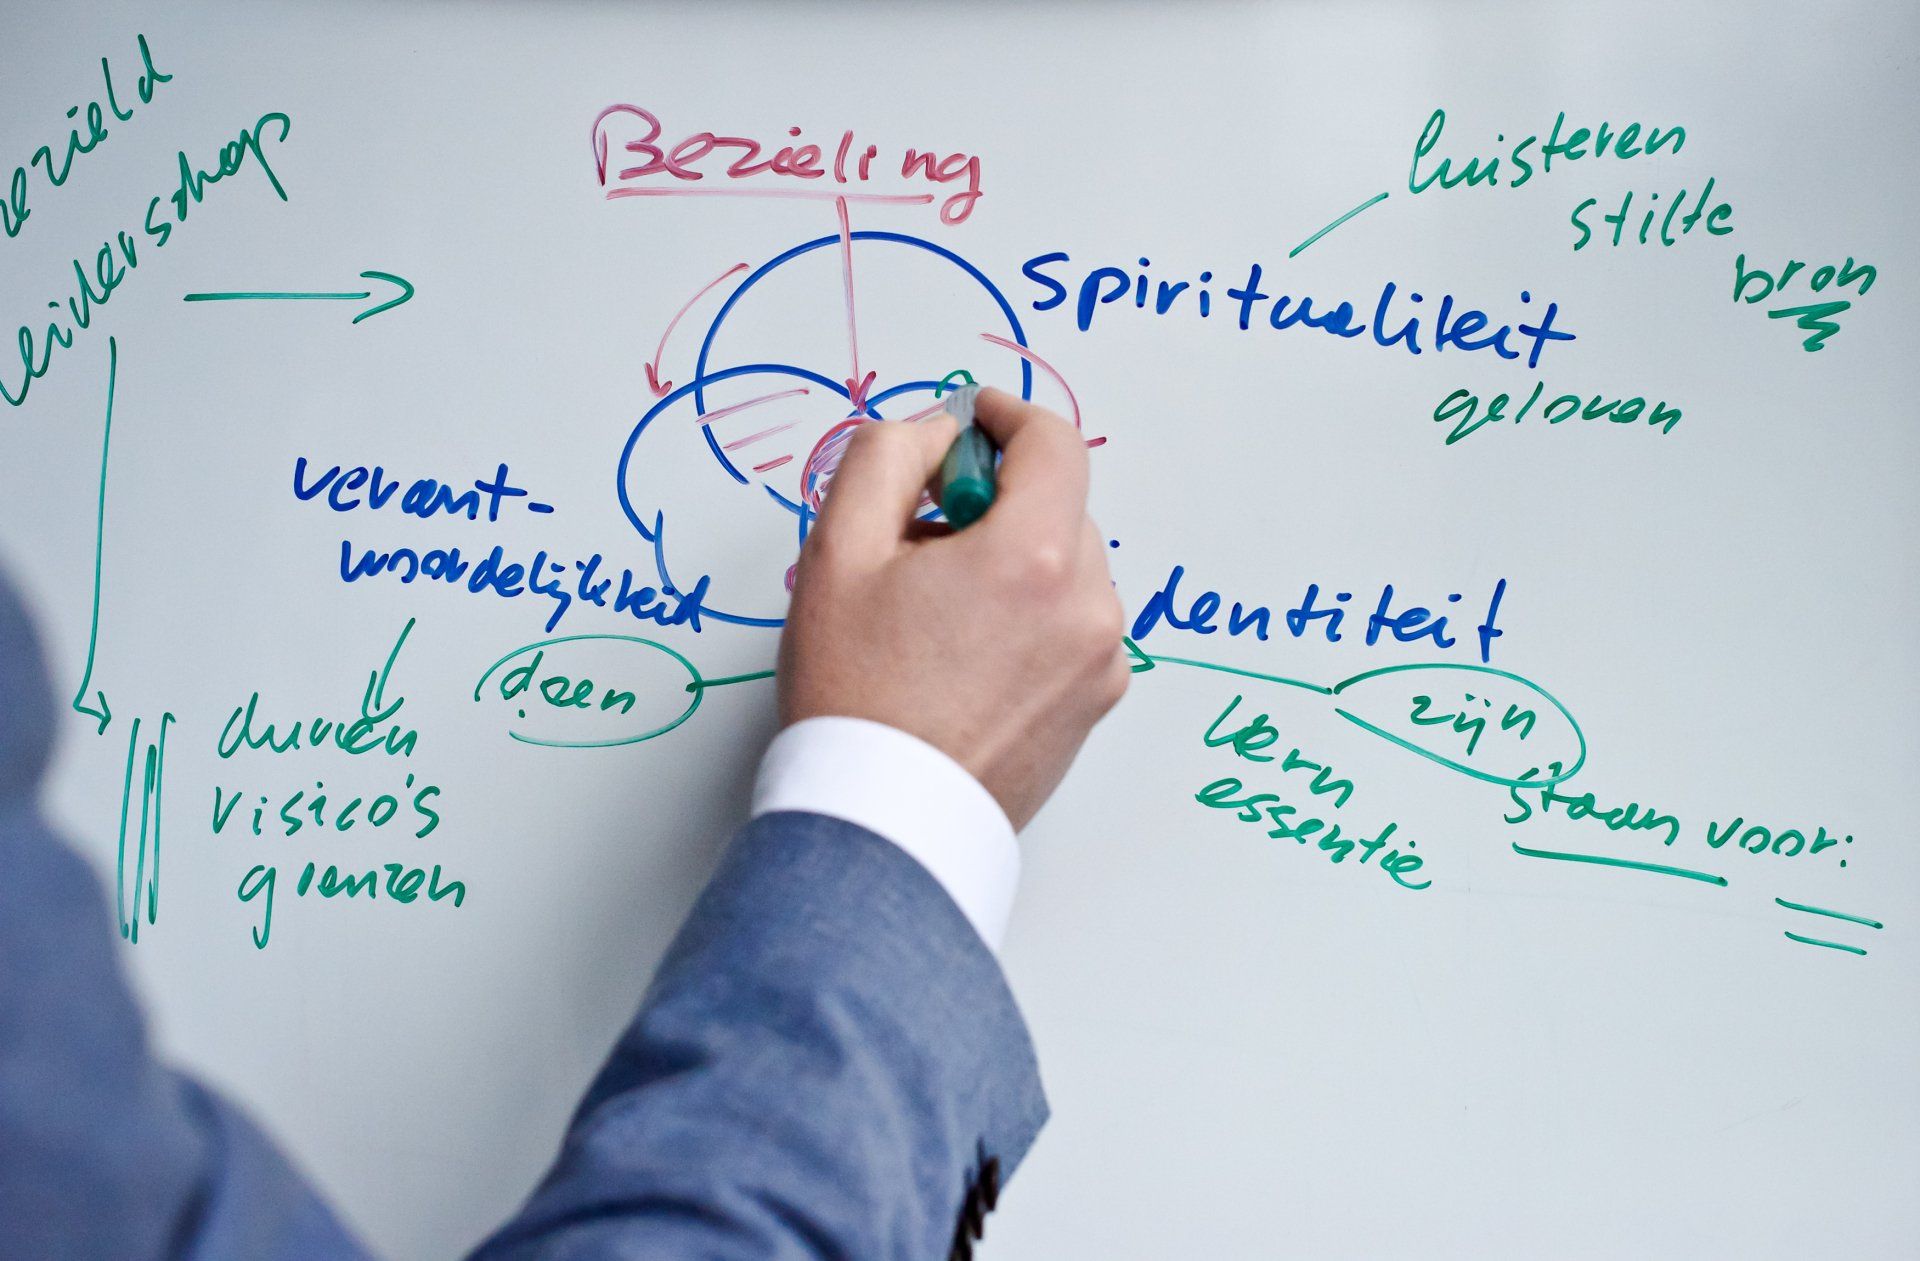 bezield
leiderschap
Bezieling
luisteren
stilte
bron
spiritualiteit
geloven
verant-
woordelijkheid
identiteit
doen
zijn
durven
risico's
grenzen
kern
essentie
staan voor: